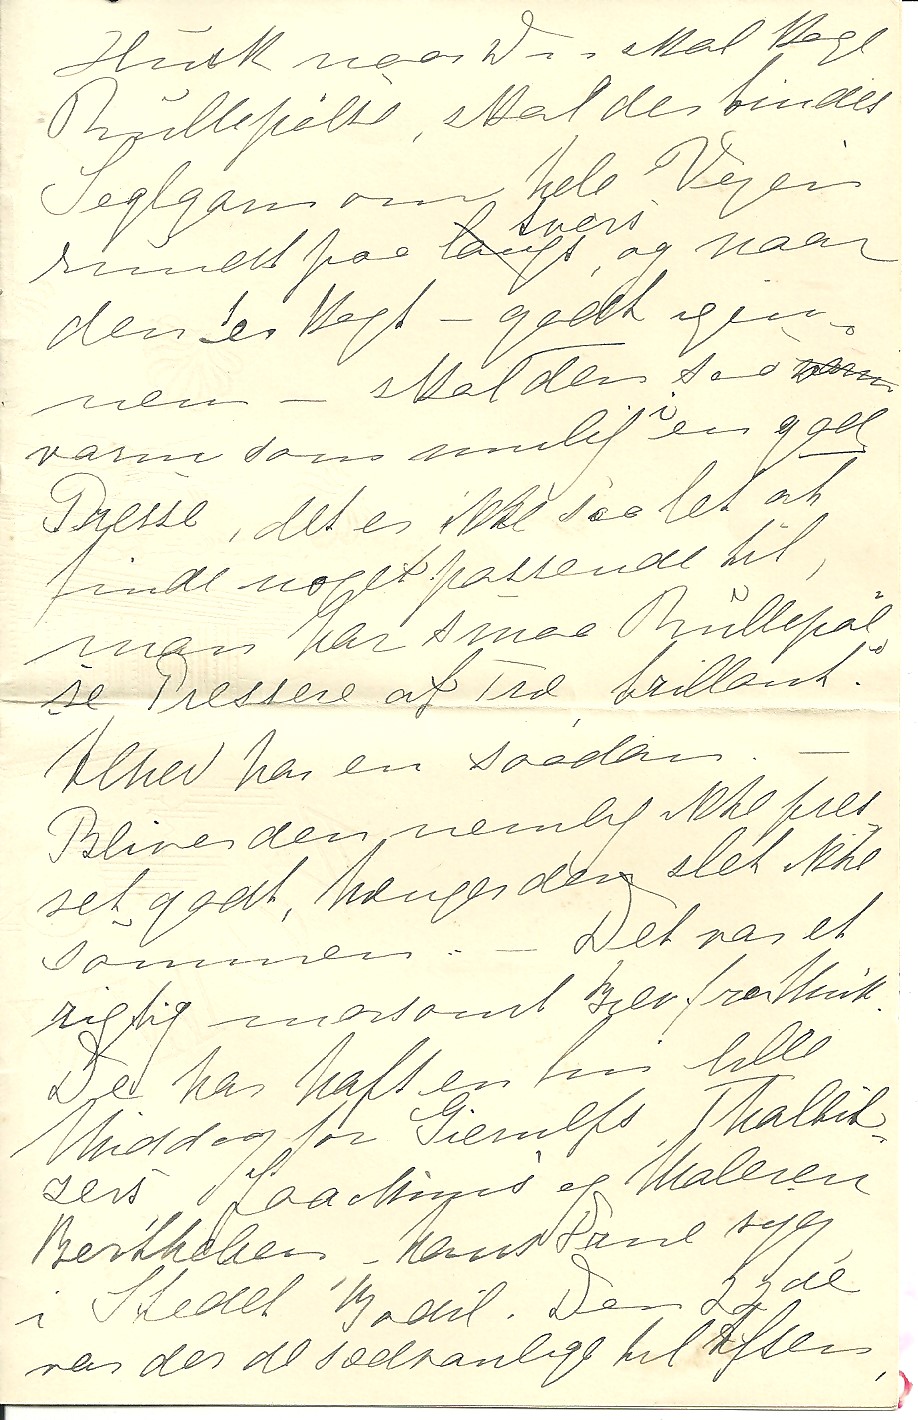 Husk naar Du skal koge
Rullepølse, skal der bindes
Seglgarn om hele Vejen
rundt paa langs tvers, og naar
den er kogt – godt igen-
nem – skal den saa
varm som mulig i en god
Presse, det er ikke saa let at
finde noget passende til,
man har smaa Rullepøl-
se Pressere af Træ brillant.
har en saadan. –
Bliver den nemlig ikke pres-
set godt, hænger den slet ikke
sammen. – Det var et
rigtig morsomt Brev fra
De har haft en fin lille
Middag for Giersulfs, Thalbit-
zers, Joackims og Maleren
Berthelsen – hans Frue syg,
i Stedet Bodil. Den 22de
var der de sædvanlige til Aften,